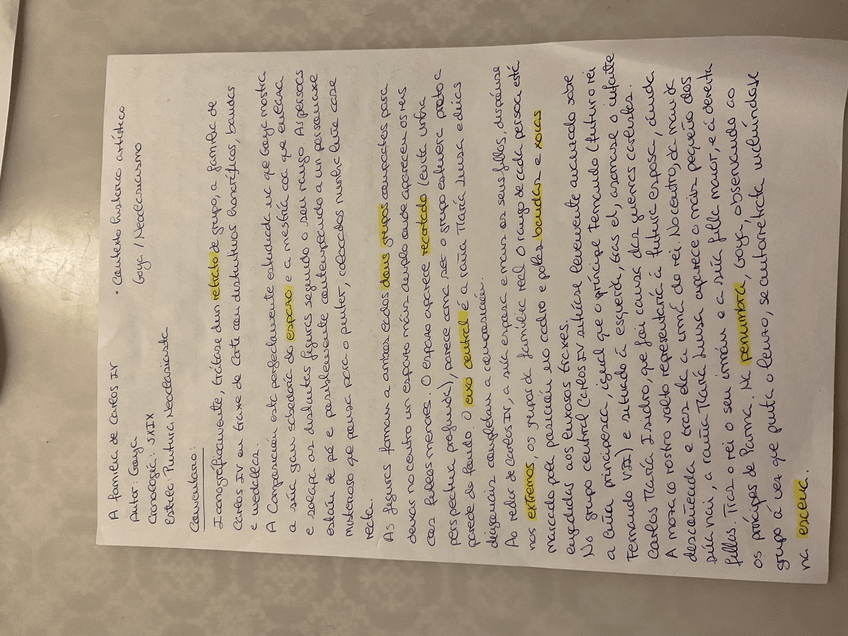 A familia de Carlos IV
Autor: Goya
Cronoloxía: SXIX
Estilo: Pintura Neoclasicista
• Contexto histórico artístico
Goya / Neoclasicismo
Comentario:
Iconograficamente, trátase dun retrato de grupo, a familia de
Carlos IV en traxe de Corte con distintivos honoríficos, bandas
e medallas.
A Composición está perfectamente estudada na que Goya mostra
a súa gran sabedoría do espazo e a mestría coa que enlaza
e solapa as distintas figuras segundo o seu rango. As persoas
están de pé e posiblemente contemplando a un personaxe
misterioso que pousa para o pintor, colocados nunha liña case
recta.
As figuras forman a ambos lados dous grupos compactos para
deixar no centro un espazo máis amplo onde aparecen os reis
cos fillos menores. O espazo aparece recortado (evita unha
perspectiva profunda), parece coma se o grupo estivera preto a
parede do fondo. O eixo central é a raíña María Luisa e dúas
diagonais completan a composición.
Ao redor de Carlos IV, a súa esposa e mais os seus fillos, dispónse
nos extremos, os grupos da familia real. O rango de cada persoa está
marcado pola posición no cadro e polas bandas e xoias
engadidas aos luxosos traxes.
No grupo central Carlos IV sitúase levemente avanzado sobre
a liña principesca, igual que o príncipe Fernando (futuro rei
Fernando VII) e situado á esquerda, tras el, asómase o infante
Carlos María Isidro, que foi causa das guerras carlistas.
A moza co rostro volto representaría á futura esposa, aínda
descoñecida e tras ela a irmá do rei. No centro, da man da
súa nai, a raíña María Luisa aparece o máis pequeno dos
fillos. Tras o rei o seu irmán e a súa filla maior, e á dereita
os príncipes de Parma. Na penumbra, Goya, observando ao
grupo á vez que pinta o lenzo, se autorretrata incluíndose
na escena.